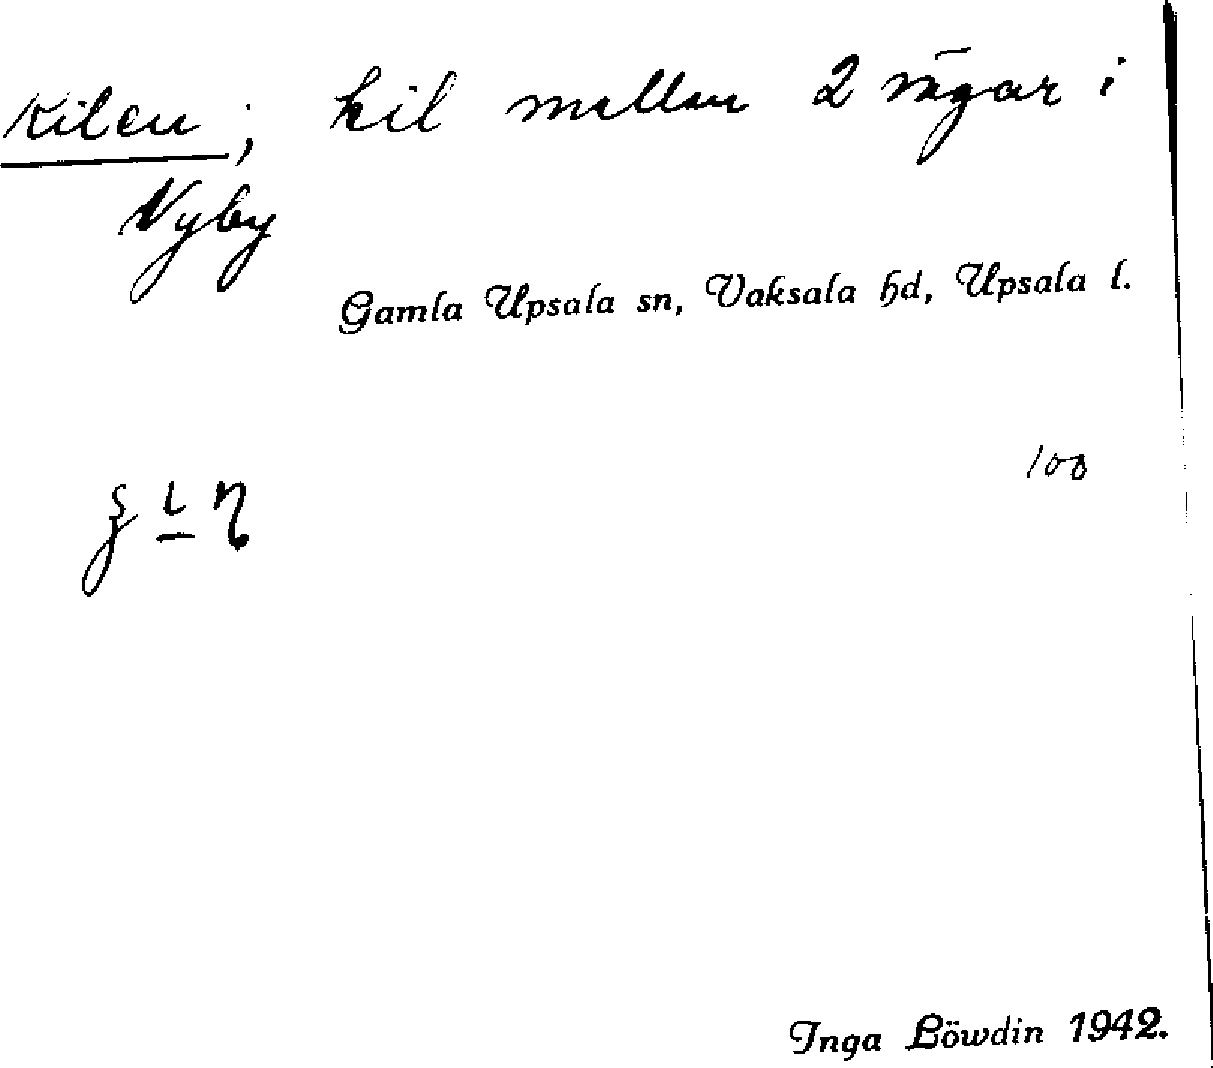 Kilen; kil mellan 2 vägar i
Nyby
Gamla Upsala sn, Vaksala hd, Upsala l.
100
Inga Löwdin 1942.